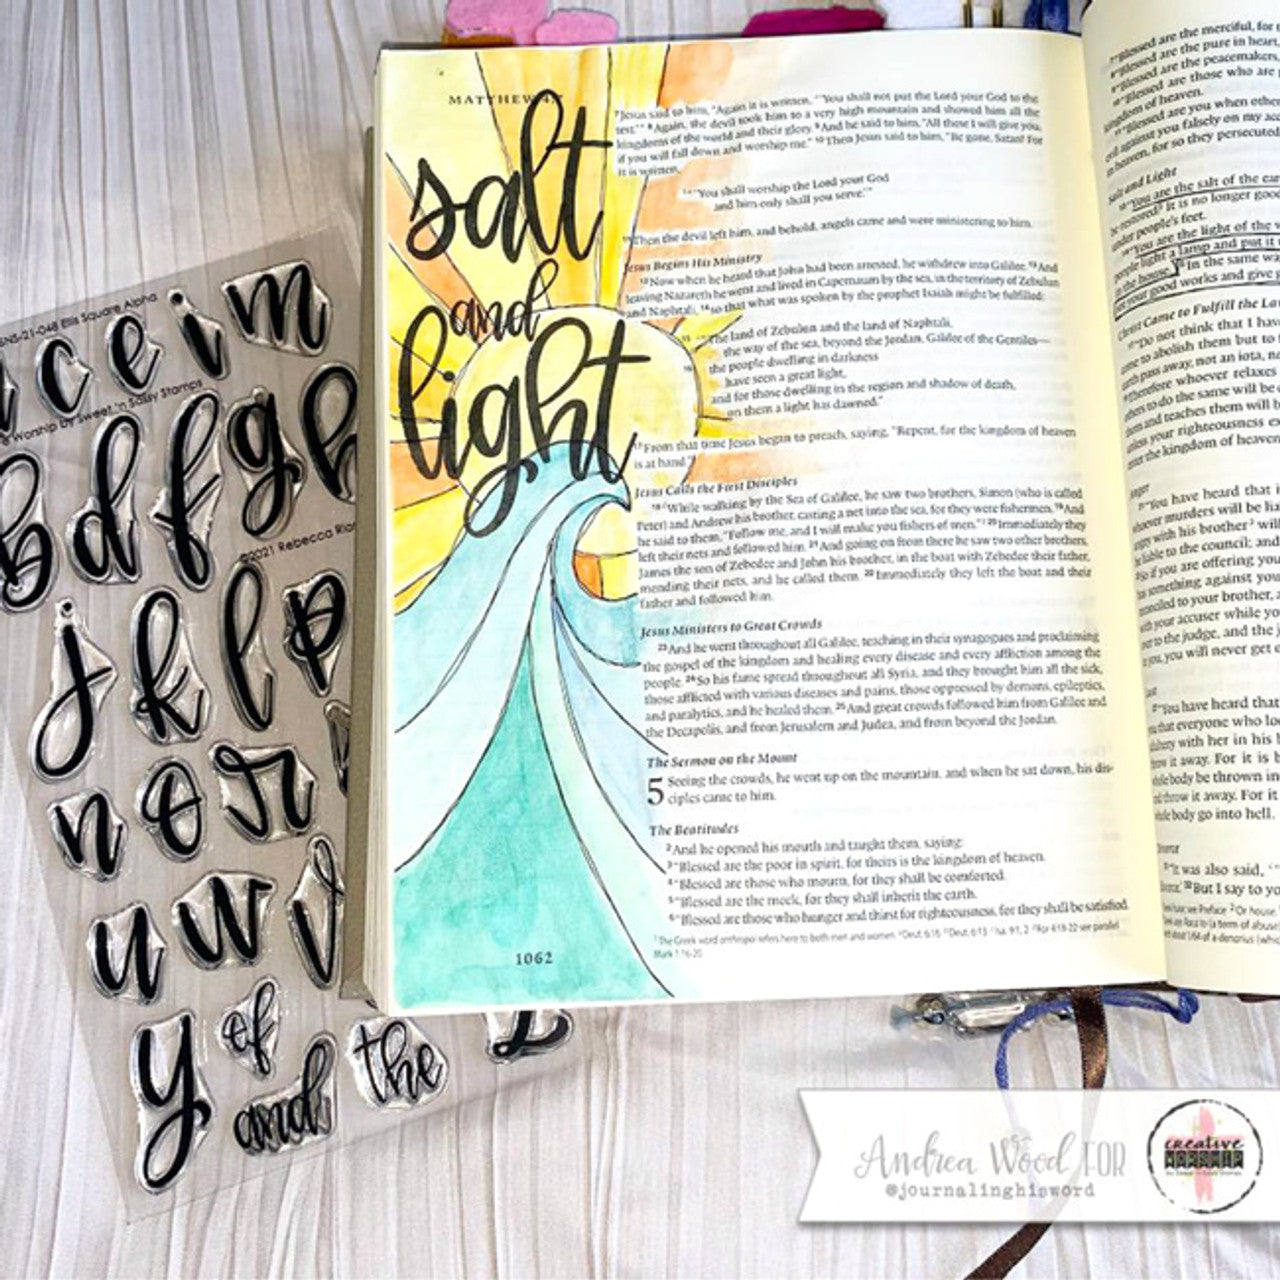 SNS-21-048 Ellis Square Alpha
c e i m
Worship by Sweet 'n Sassy Stamps
b d f g h
©2021 Rebecca
j k l p
n o r
u w v
y of
and the
MATTHEW 4:7
salt
and
light
7Jesus said to him, "Again it is written, 'You shall not put the Lord your God to the
test.'" 8Again, the devil took him to a very high mountain and showed him all the
kingdoms of the world and their glory. 9And he said to him, "All these I will give you,
if you will fall down and worship me." 10Then Jesus said to him, "Be gone, Satan! For
it is written,
"'You shall worship the Lord your God
and him only shall you serve.'"
11Then the devil left him, and behold, angels came and were ministering to him.
Jesus Begins His Ministry
12Now when he heard that John had been arrested, he withdrew into Galilee. 13And
leaving Nazareth he went and lived in Capernaum by the sea, in the territory of Zebulun
and Naphtali, 14so that what was spoken by the prophet Isaiah might be fulfilled:
15 "The land of Zebulun and the land of Naphtali,
the way of the sea, beyond the Jordan, Galilee of the Gentiles—
16 the people dwelling in darkness
have seen a great light,
and for those dwelling in the region and shadow of death,
on them a light has dawned."
17From that time Jesus began to preach, saying, "Repent, for the kingdom of heaven
is at hand."
Jesus Calls the First Disciples
18While walking by the Sea of Galilee, he saw two brothers, Simon (who is called
Peter) and Andrew his brother, casting a net into the sea, for they were fishermen. 19And
he said to them, "Follow me, and I will make you fishers of men." 20Immediately they
left their nets and followed him. 21And going on from there he saw two other brothers,
James the son of Zebedee and John his brother, in the boat with Zebedee their father,
mending their nets, and he called them. 22Immediately they left the boat and their
father and followed him.
Jesus Ministers to Great Crowds
23And he went throughout all Galilee, teaching in their synagogues and proclaiming
the gospel of the kingdom and healing every disease and every affliction among the
people. 24So his fame spread throughout all Syria, and they brought him all the sick,
those afflicted with various diseases and pains, those oppressed by demons, epileptics,
and paralytics, and he healed them. 25And great crowds followed him from Galilee and
the Decapolis, and from Jerusalem and Judea, and from beyond the Jordan.
The Sermon on the Mount
5 Seeing the crowds, he went up on the mountain, and when he sat down, his dis-
ciples came to him.
The Beatitudes
2And he opened his mouth and taught them, saying:
3"Blessed are the poor in spirit, for theirs is the kingdom of heaven.
4"Blessed are those who mourn, for they shall be comforted.
5"Blessed are the meek, for they shall inherit the earth.
6"Blessed are those who hunger and thirst for righteousness, for they shall be satisfied.
The Greek word anthropoi refers here to both men and women
Mark 1:16-20
1062
7"Blessed are the merciful, for
8"Blessed are the pure in heart,
9"Blessed are the peacemakers,
10"Blessed are those who are
kingdom of heaven.
11"Blessed are you when others
evil against you falsely on my
in heaven, for so they persecuted
Salt and Light
13"You are the salt of the
be restored? It is no longer good
under people's feet.
14"You are the light of the
people light a lamp and put it
in the house. 16In the same way
your good works and give
Christ Came to Fulfill the
17"Do not think that I have
come to abolish them but to
earth pass away, not an iota,
Therefore whoever relaxes
others to do the same will be
them and teaches them will be
unless your righteousness
enter the kingdom of heaven
Anger
21"You have heard that
whoever murders will be
angry with his brother will
liable to the council; and
So if you are offering your
has something against you
reconciled to your brother,
with your accuser while you
over to the judge, and the
you, you will never get
27"You have heard that
that everyone who
adultery with her in his
throw it away. For it is
whole body be thrown in
throw it away. For it
whole body go into hell.
31"It was also said, "
32But I say to
Andrea Wood FOR
@journalinghisword
creative
WORSHIP